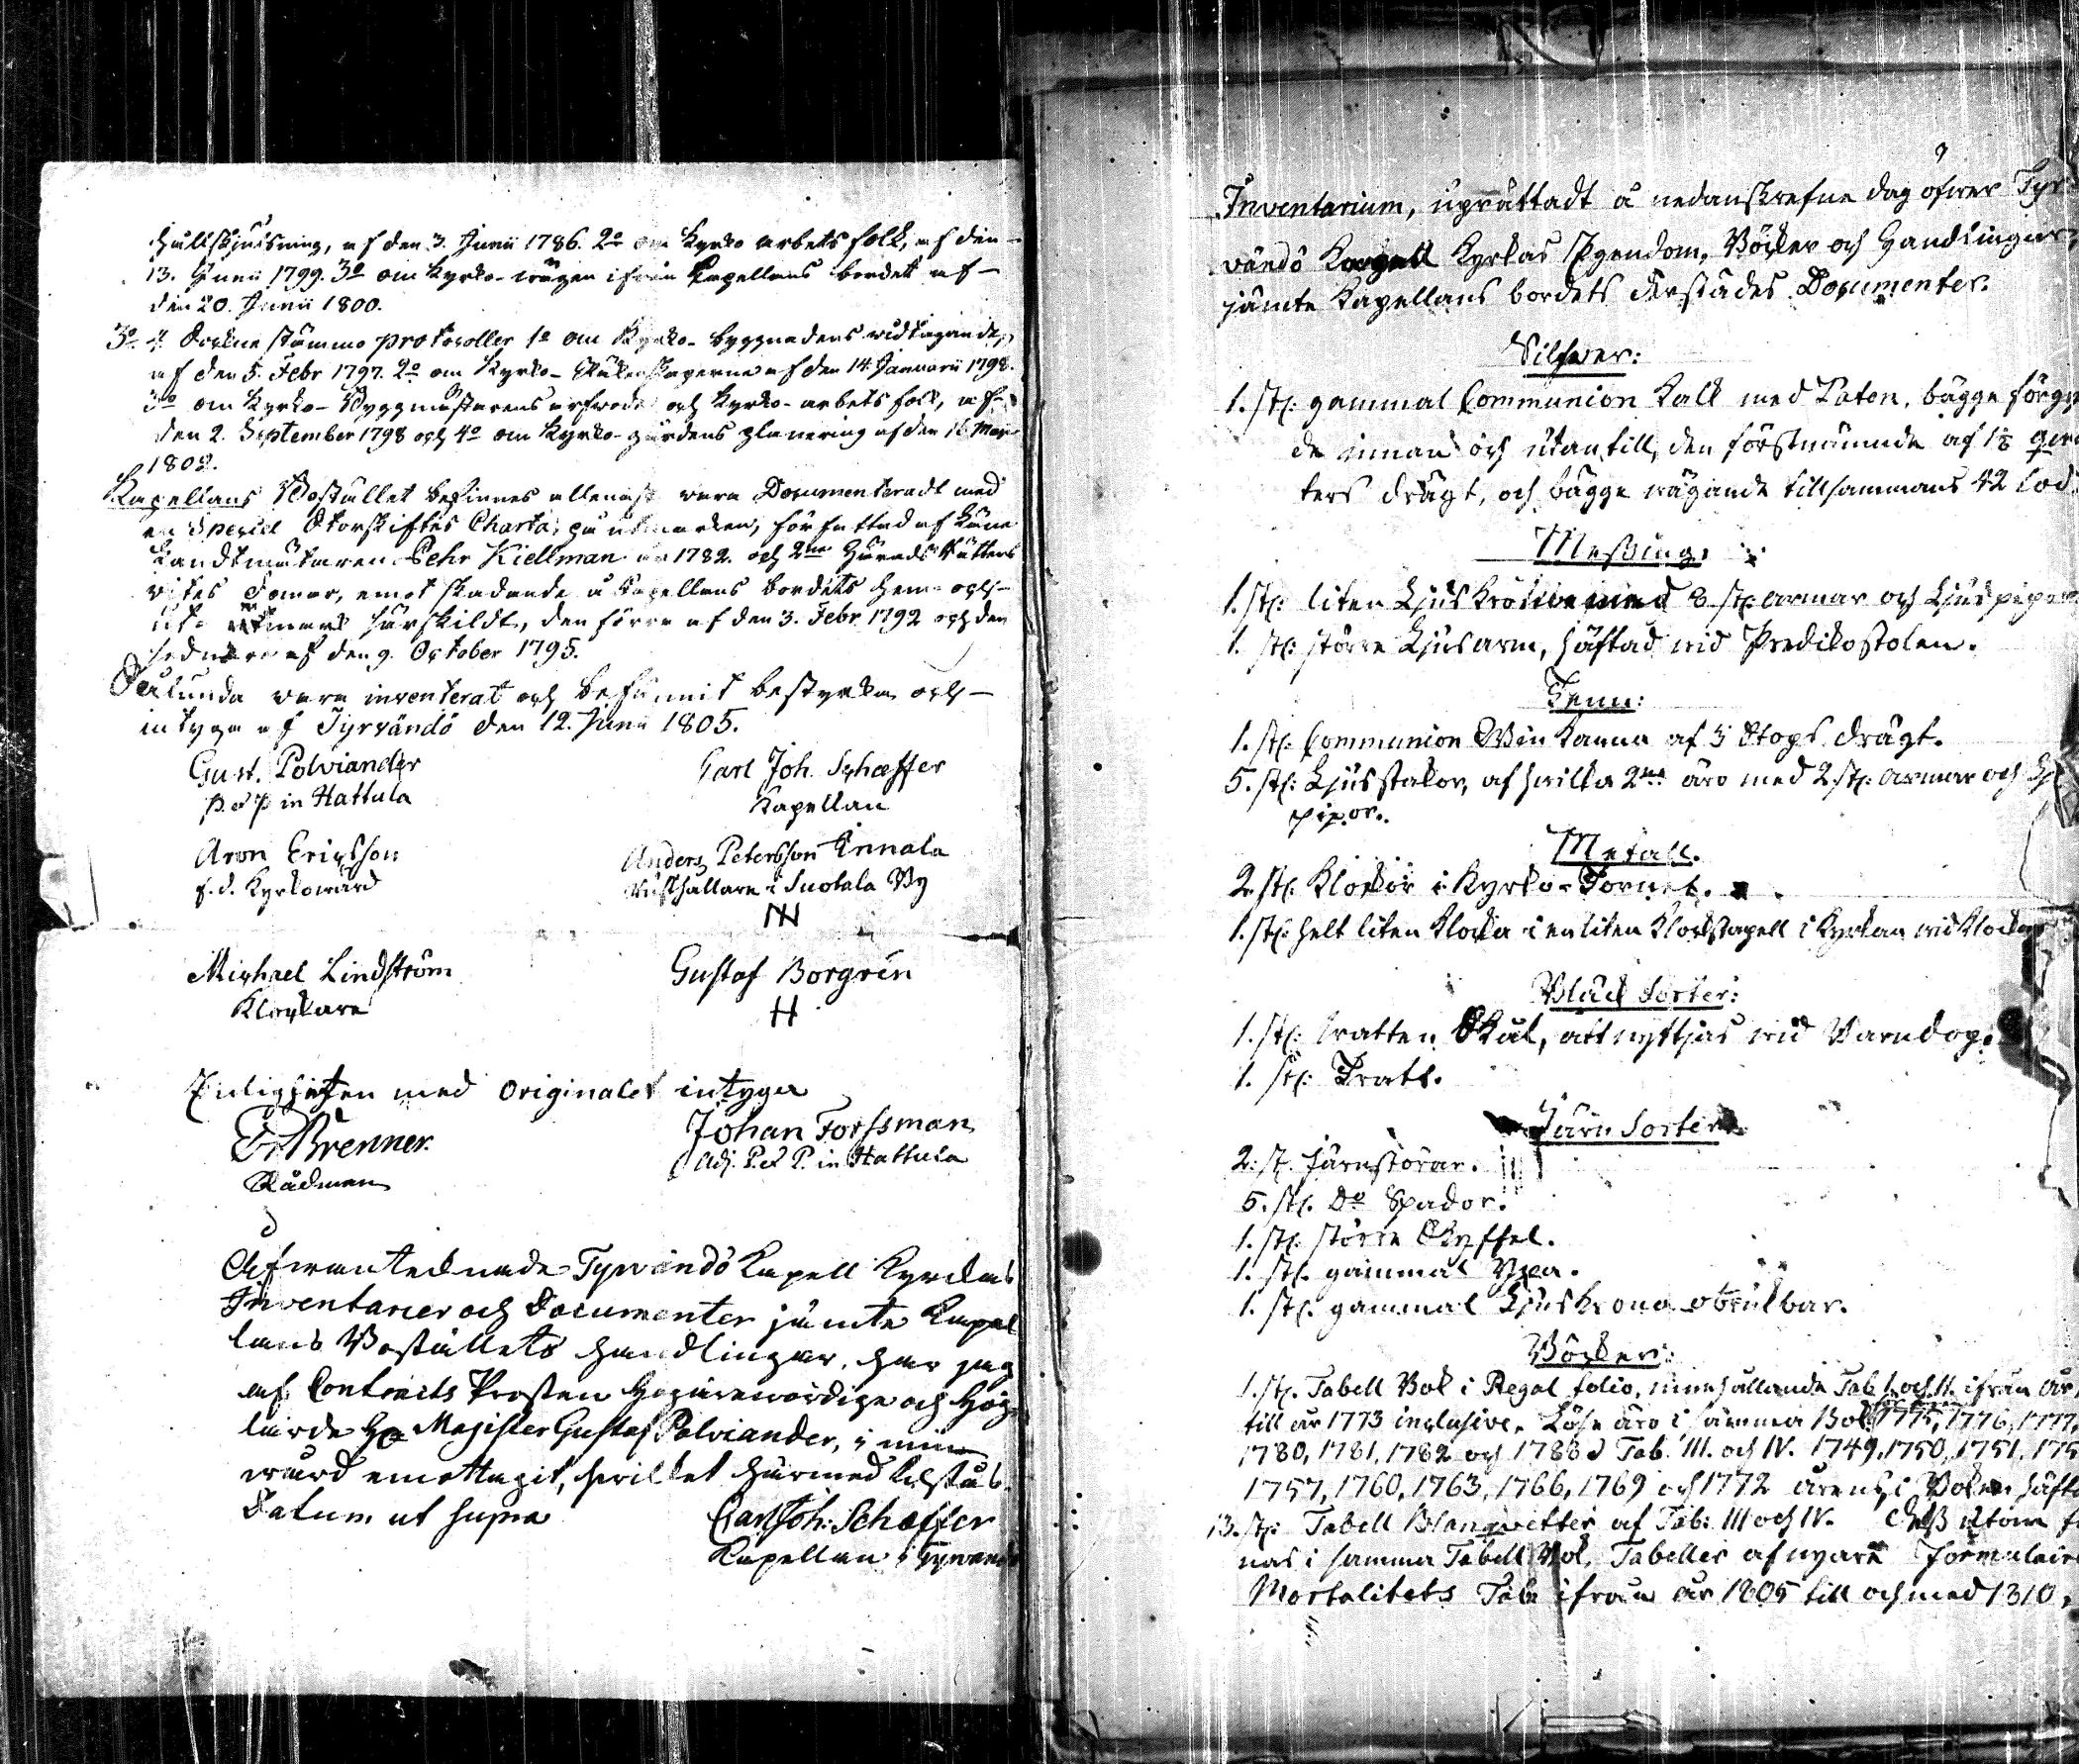 hållskjutsning, af den 3. Junii 1786. 2o om Kyrko arbets folk, af den
13. Junii 1799. 3o om Kyrko-wägen ifrån Kapellans bordet af
den 20. Junii 1800.
3o 4 Sockne stämmo protocoller 1o om Kyrko-byggnadens widtagande,
af den 5. Febr 1797. 2o om Kyrko-Räkenskaperne af den 14 Januarii 1798.
3o om Kyrko-Byggmästarens arfwode och Kyrko-arbets folk, af
den 2. September 1798 och 4o om Kyrko-gårdens planering af den 16 Maji
1802.
Kapellans Bostället befinnes allenast vara Documenteradt med
en Special Storskiftes Charta, på utmarken, författad af
Landtmätaren Pehr Kiellman år 1782. och 2ne Härads Rättens
Domar, emot skadande å Kapellans bordets hem- och
utmark särskildt, den förra af den 3. Febr 1792 och den
sednare af den 9. October 1795.
Sålunda vara inventerat och befunnit bestyrka och
intyga af Tyrvändö den 12. Junii 1805.
Gust. Polviander Carl Joh. Schæffer
P. et P. in Hattula Kapellan
Aron Ericsson Anders Petersson Annala
f. d. Kyrkowärd Rusthållare i Suotala By
Michael Lindström Gustaf Borgrén
Klockare H
Enligheten med originalet intyga
Er. Brenner Johan Forssman
Rådman Adj. P. et P. in Hattula
Ofwantecknade Tyrvändö Kapell Kyrckas
Inventarier och Documenter jämte Kapel
lans Boställets handlingar, har jag
af Contracts Prosten Högärewördige och Hög
lärde Hr Magister Gustaf Polviander, i min
wård emottagit, hwilket härmed
Datum ut supra Carl Joh: Schæffer
Kapellan i Tyrvändö
Inventarium, uprättadt å nedanskrefne dag öfwer Tyr-
vändö Kapell Kyrkas Egendom, Böcker och Handlingar,
jämte Kapellans bordets derstädes Documenter.
Silfwer:
1. st: gammal Communion Kalk med Paten, bägge förgy
de innan och utantill, den förstnämnde af 1½ qwar
ters drägt, och bägge wägande tillsammans 42 lod.
Messing:
1. st: liten Ljus Krona med 8 st: armar och Ljuspipor
1. st: större Ljusarm, häftad wid Predikostolen.
Tenn:
1. st: Communion Win Kanna af 3 Stops drägt.
5. st: Ljusstakar, af hwilka 2ne äro med 2 st: armar och Lj
pipor.
Metall.
2. st: Klockor i Kyrko-Tornet.
1. st: helt liten Klocka i en liten Klockstapell i Kyrkan wid Klockar
Bläck Sorter:
1. st: Watten Skål, att nyttjas wid Barndop.
1. st: Tratt.
Järn Sorter
2. st. Järnstörar.
5. st. Do Spador.
1. st: större Skyffel.
1. st. gammal Yxa.
1. st. gammal Ljus Krona obrukbar.
Böcker:
1. st. Tabell Bok i Regal folio, innehållande Tab I. och II. ifrån år
till år 1773 inclusive. Löse äro i samma Bok 1775, 1776, 1777,
1780, 1781, 1782 och 1783 Tab. III. och IV. 1749, 1750, 1751, 175
1757, 1760, 1763, 1766, 1769 och 1772 årens, i Boken häfta
13. st: Tabell Blanqvetter af Tab: III och IV. Dess utom f
nas i samma Tabell Bok, Tabeller af nyare Formulair
Mortalitets Tab. ifrån år 1805 till och med 1810.